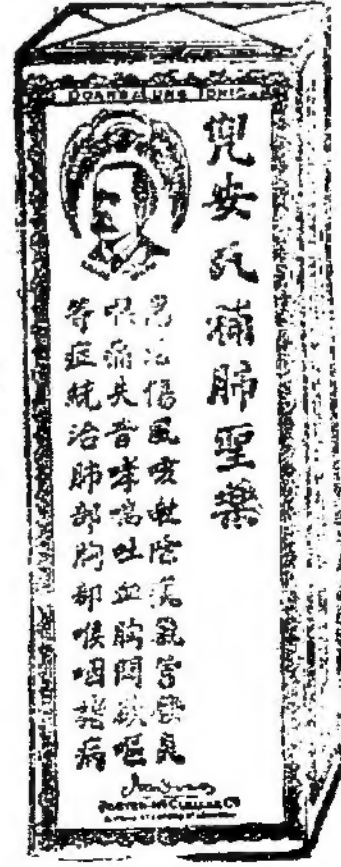 DOAN'S LUNG TONIC
兜安氏補肺聖藥
治傷風咳嗽氣管發炎
喉痛失音哮喘吐血胸悶
等症統治肺部胸部喉咽諸病
FOSTER-McCLELLAN CO